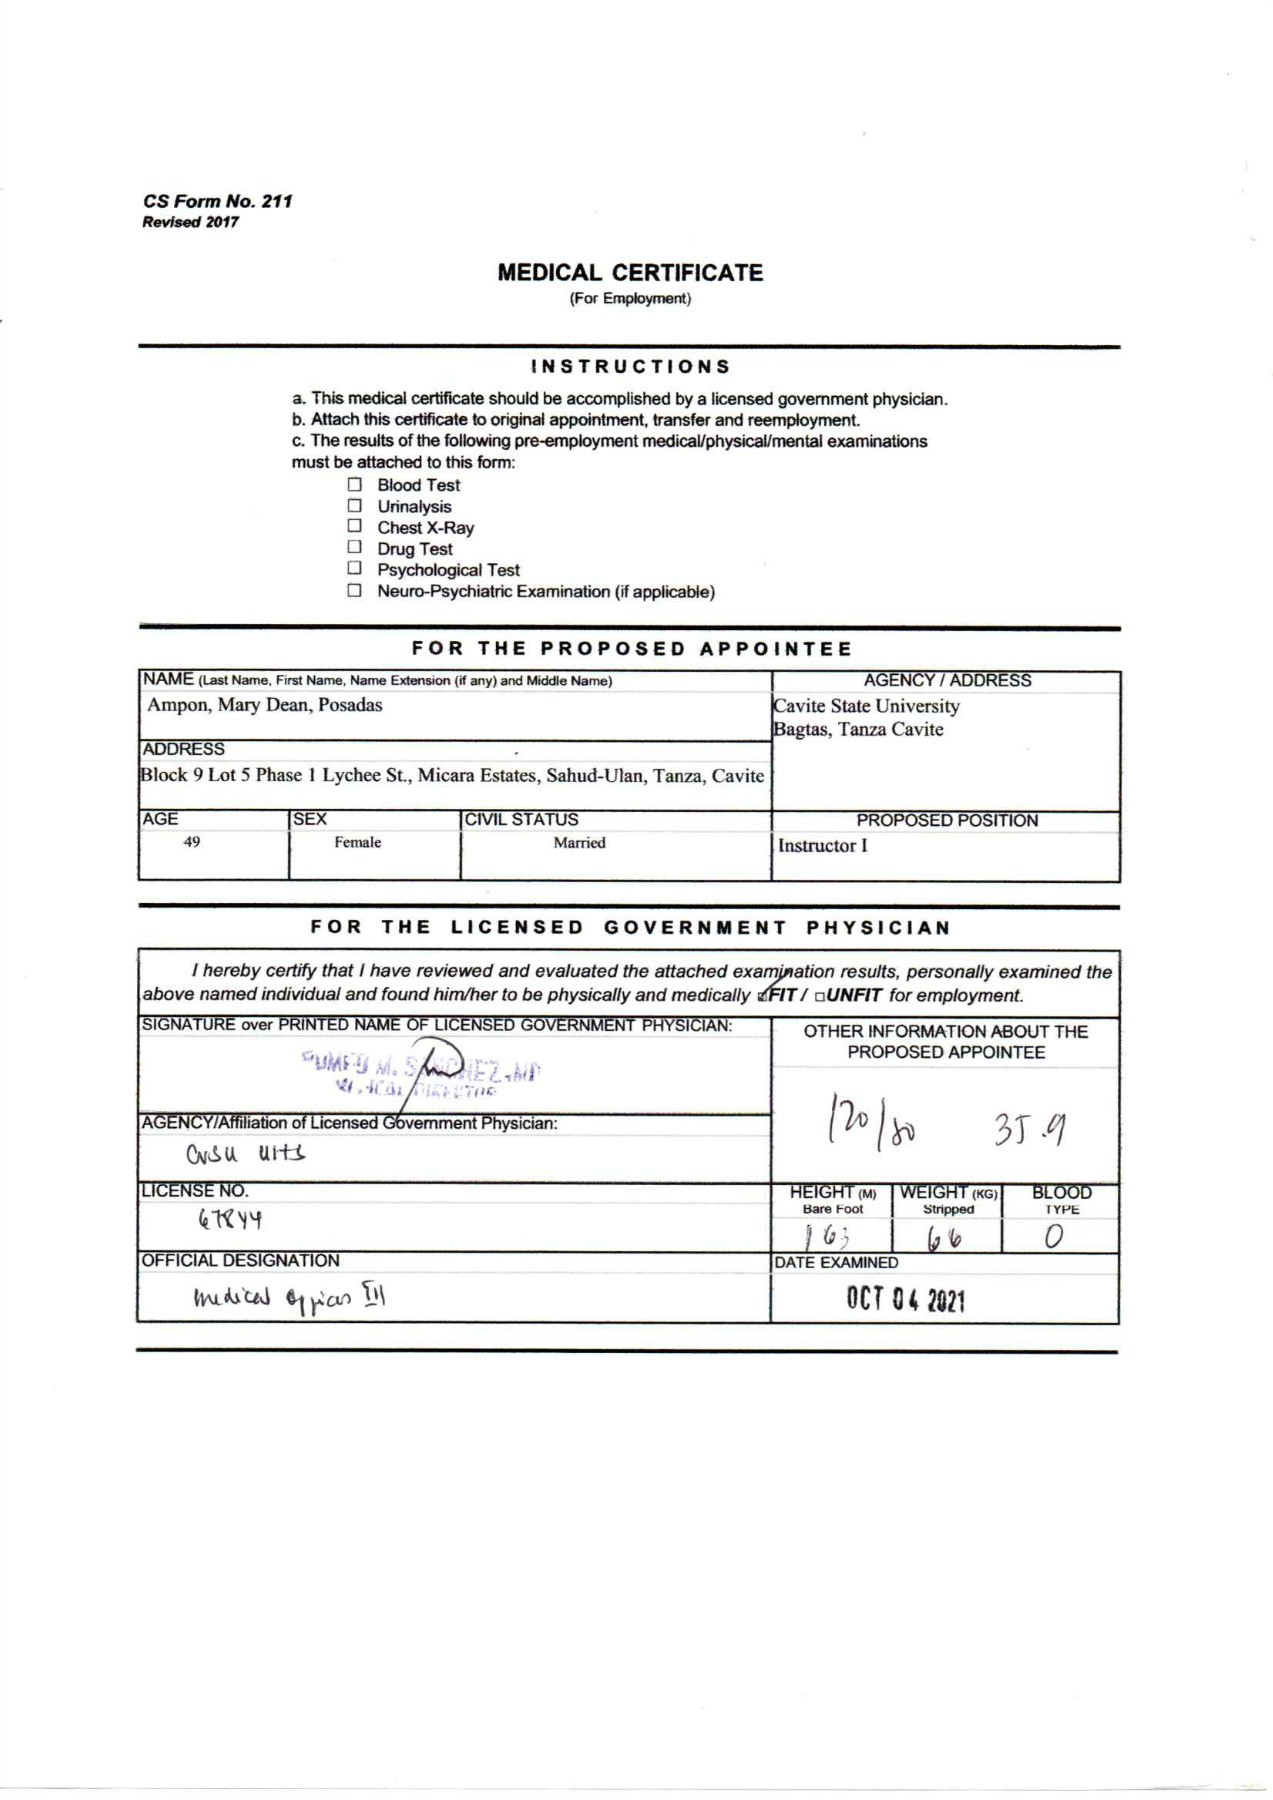 CS Form No. 211
Revised 2017
MEDICAL CERTIFICATE
(For Employment)
INSTRUCTIONS
a. This medical certificate should be accomplished by a licensed government physician.
b. Attach this certificate to original appointment, transfer and reemployment.
c. The results of the following pre-employment medical/physical/mental examinations
must be attached to this form:
☐ Blood Test
☐ Urinalysis
☐ Chest X-Ray
☐ Drug Test
☐ Psychological Test
☐ Neuro-Psychiatric Examination (if applicable)
FOR THE PROPOSED APPOINTEE
NAME (Last Name, First Name, Name Extension (if any) and Middle Name)
Ampon, Mary Dean, Posadas
AGENCY / ADDRESS
Cavite State University
Bagtas, Tanza Cavite
ADDRESS
Block 9 Lot 5 Phase 1 Lychee St., Micara Estates, Sahud-Ulan, Tanza, Cavite
AGE
49
SEX
Female
CIVIL STATUS
Married
PROPOSED POSITION
Instructor I
FOR THE LICENSED GOVERNMENT PHYSICIAN
I hereby certify that I have reviewed and evaluated the attached examination results, personally examined the
above named individual and found him/her to be physically and medically ☑FIT / ☐UNFIT for employment.
SIGNATURE over PRINTED NAME OF LICENSED GOVERNMENT PHYSICIAN:
M. SANCHEZ, MD
MEDICAL DIRECTOR
OTHER INFORMATION ABOUT THE
PROPOSED APPOINTEE
120/80 35.9
AGENCY/Affiliation of Licensed Government Physician:
CvSU
LICENSE NO.
67844
HEIGHT (M)
Bare Foot
163
WEIGHT (KG)
Stripped
66
BLOOD
TYPE
O
OFFICIAL DESIGNATION
Medical Officer III
DATE EXAMINED
OCT 04 2021